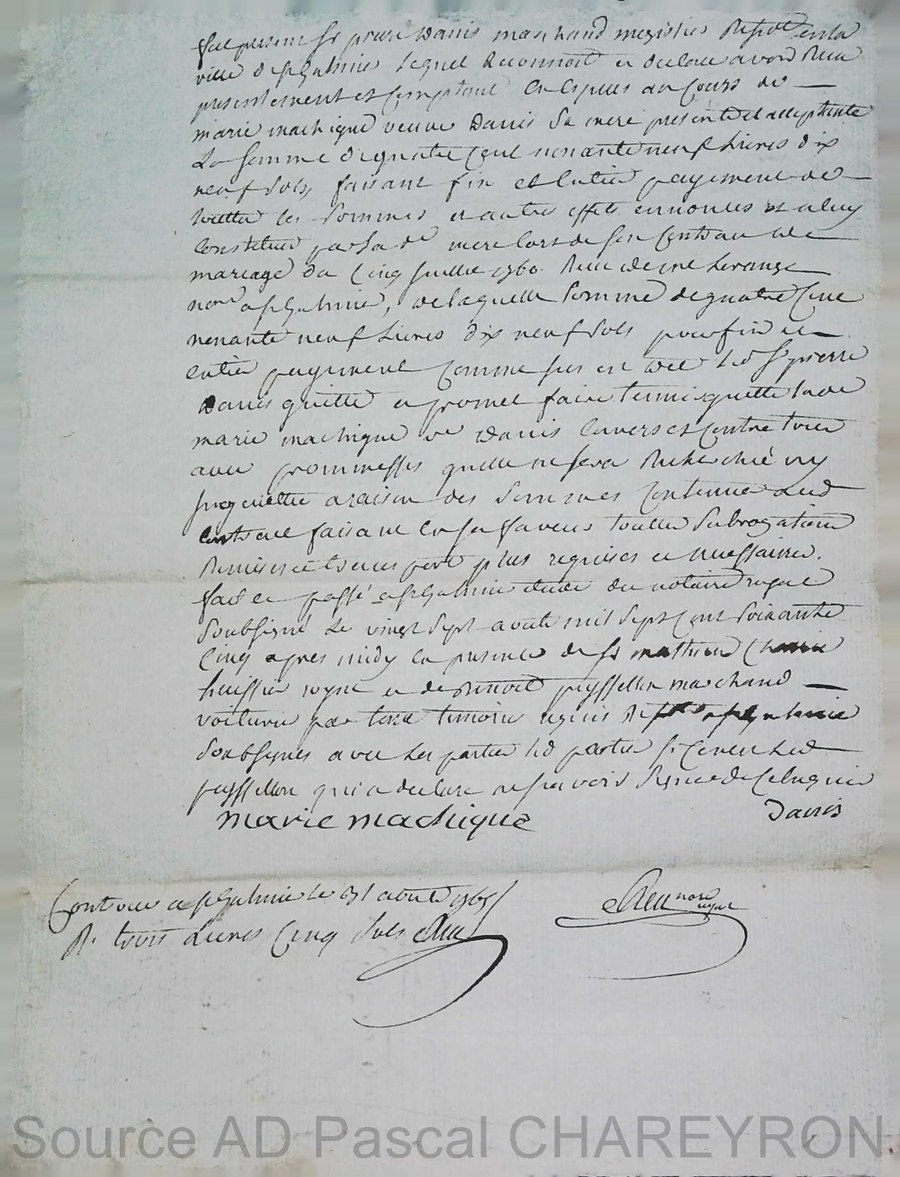 fut present Sr pierre Davis marchand megissier en la
ville de St Galmier lequel Reconnoit et declare avoir Recu
presentement et Comptant En Especes au Cours de
marie machique veuve Davis Sa mere presente et acceptante
La Somme de quatre Cent nonante neuf Livres dix
neuf Sols, faisant fin et Entier payement de
toutte les Sommes et autres effets ennoncés et a luy
Constitués par Sa de mere Lors de Son Contrat de
mariage du Cinq 1760 Recu de me
nore a St Galmier, de laquelle Somme de quatre Cent
nonante neuf Livres dix neuf Sols pour fin et
entier payement Comme sus est dit led Sr pierre
Davis quitte et promet faire tenir quitte lade
marie machique ve Davis Envers et Contre tous
avec promesses quelle ne Sera Recherchée ny
inquiettée a raison des Sommes Contenue aud
Contrat faisant En Sa faveur toutte Subrogation
Remises et plus requises et necessaires.
fait et passé a St Galmier Etude du notaire royal
Soubsigné Le vingt Sept aoust mil Sept Cent Soixante
Cinq apres midy En presence de Sr mathieu
huissier royal et de Benoit peyssellon marchand
voiturier par terre temoins requis a St Galmier
Soubsignés avec Les parties
peyssellon qui a declaré ne Scavoir Signer de Ce Enquis
marie machique Davis
Controllé a St Galmier le 31 aoust 1765
R. trois Livres Cinq Sols
nore royal
Source AD Pascal CHAREYRON